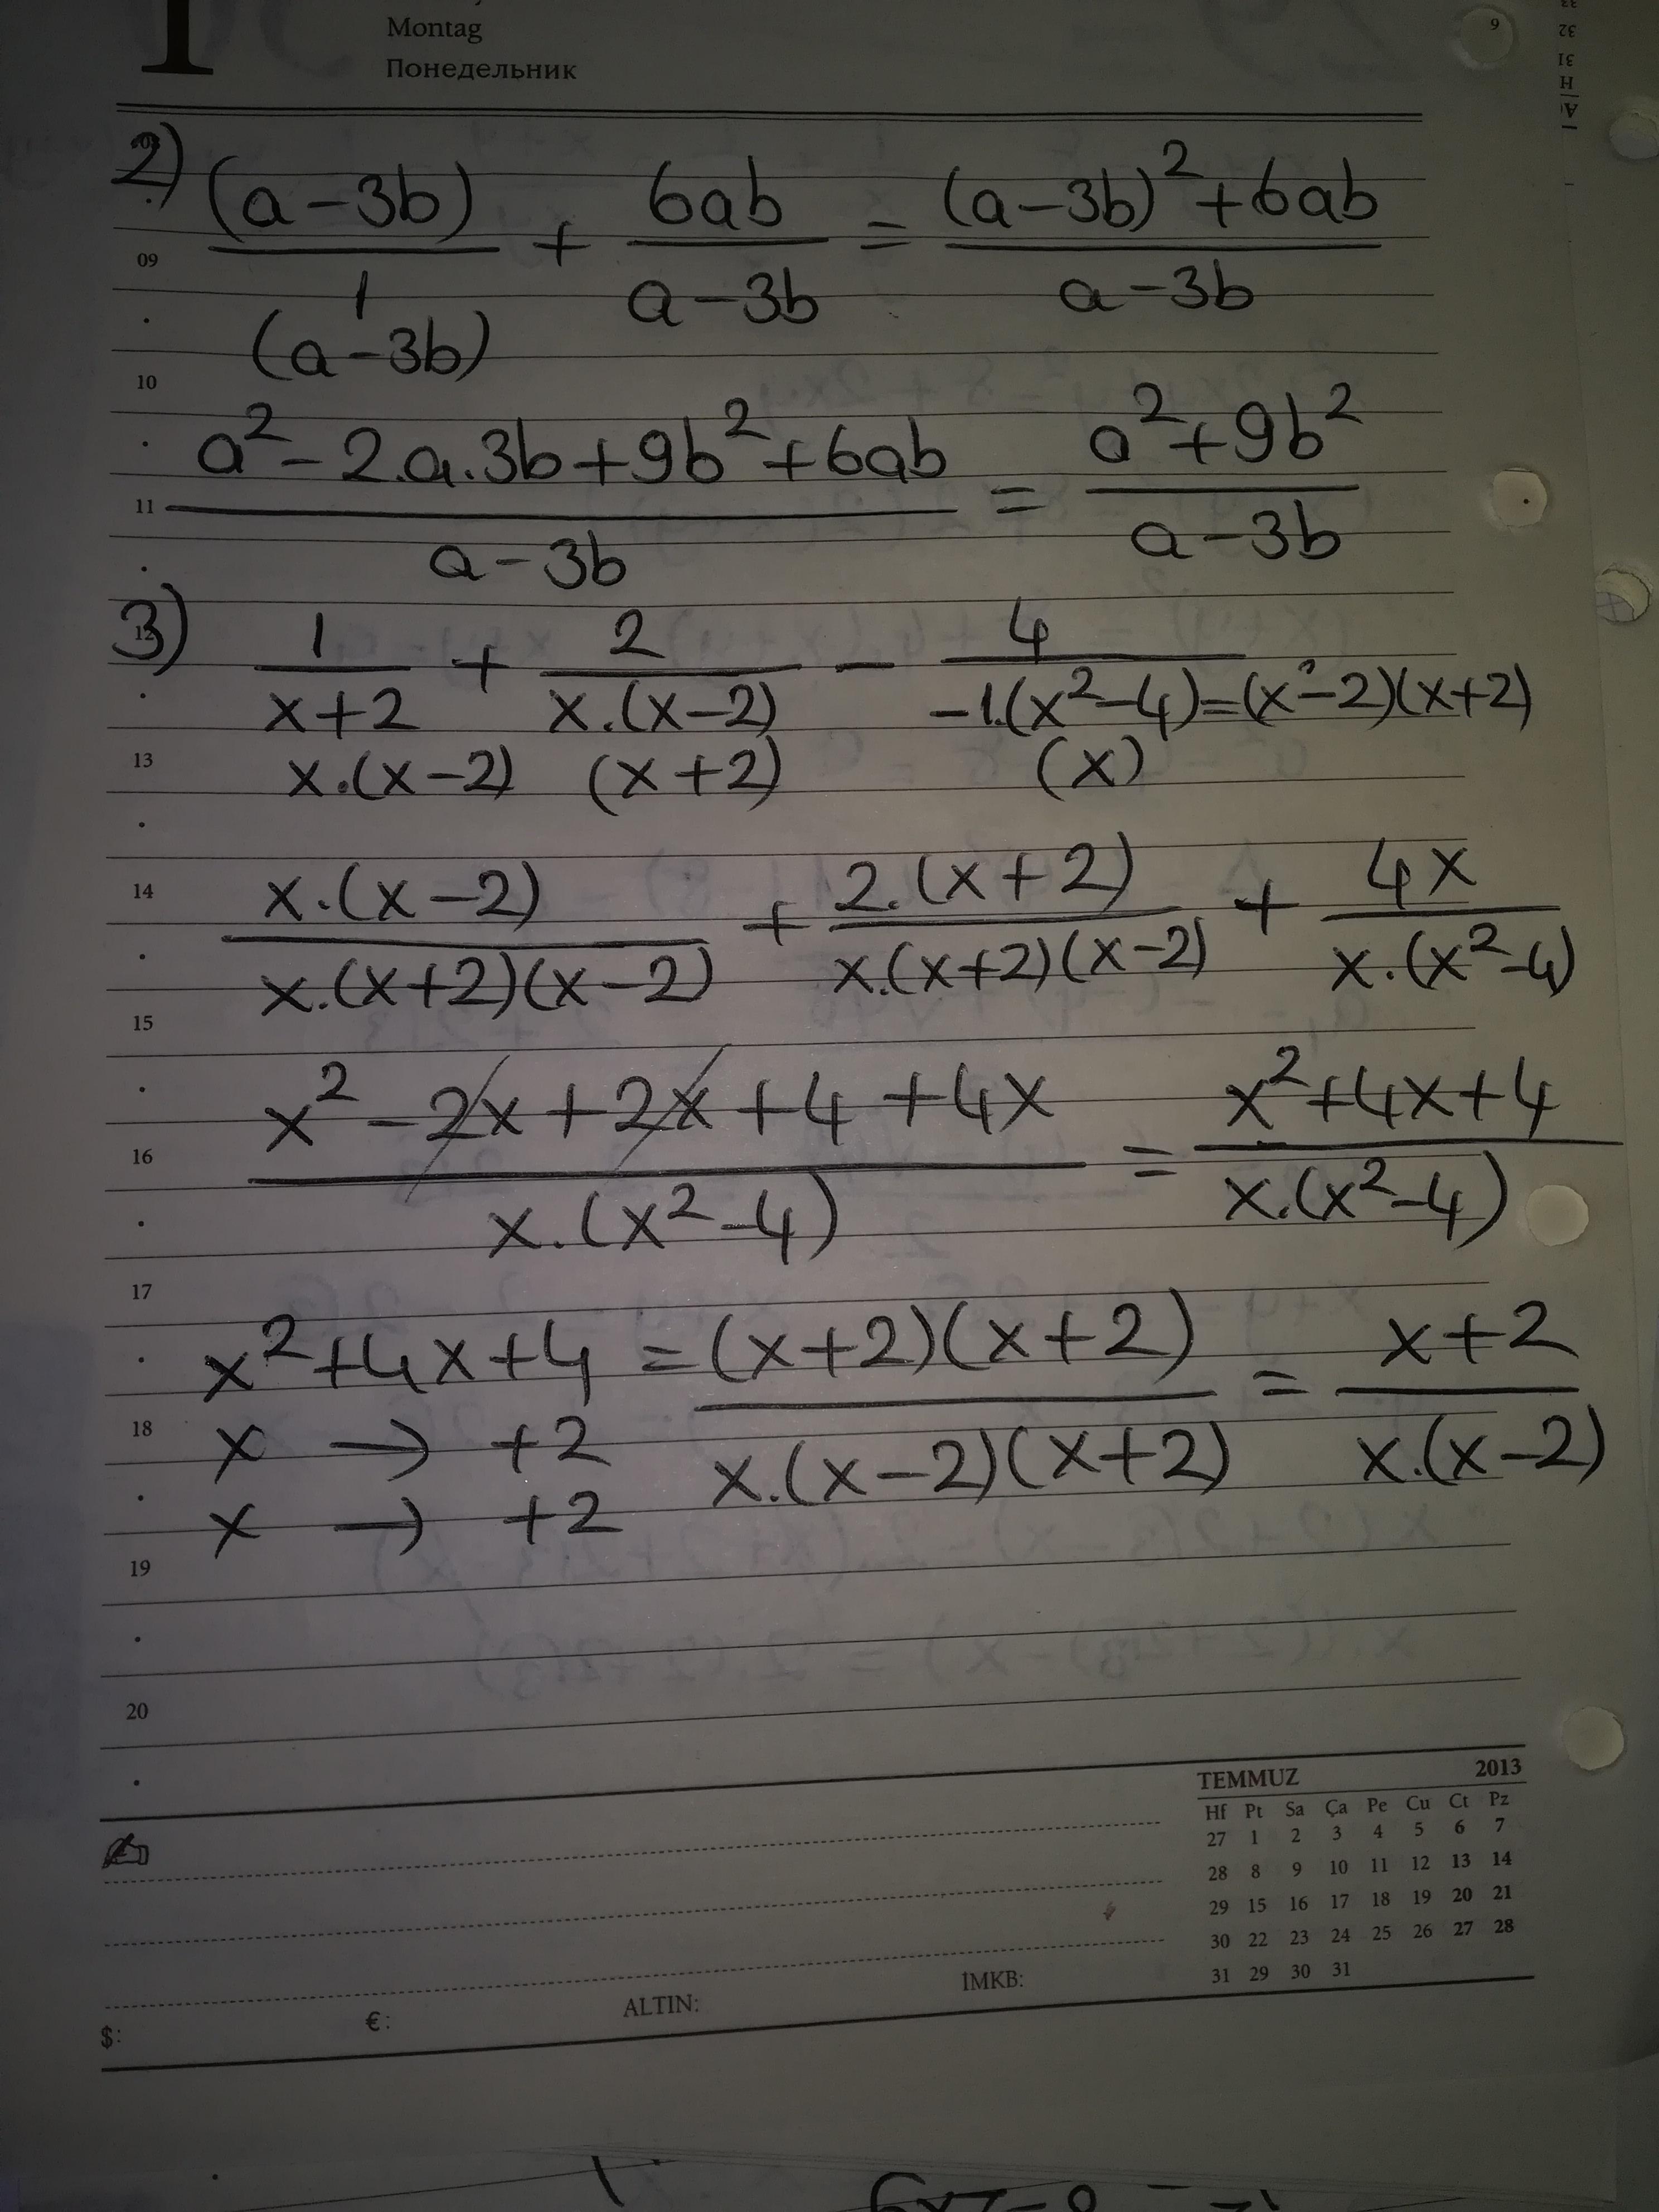 Montag
Понедельник
2) (a-3b)/1 + 6ab/(a-3b) = ((a-3b)²+6ab)/(a-3b)
(a-3b)
(a²-2.a.3b+9b²+6ab)/(a-3b) = (a²+9b²)/(a-3b)
3) 1/(x+2) + 2/(x.(x-2)) - 4/(-1.(x²-4)=(x²-2)(x+2))
x.(x-2) (x+2) (x)
x.(x-2)/(x.(x+2)(x-2)) + 2.(x+2)/(x.(x+2)(x-2)) + 4x/(x.(x²-4))
(x²-2x+2x+4+4x)/(x.(x²-4)) = (x²+4x+4)/(x.(x²-4))
x²+4x+4 = (x+2)(x+2)/(x.(x-2)(x+2)) = (x+2)/(x.(x-2))
x → +2
x → +2
08
09
10
11
12
13
14
15
16
17
18
19
20
TEMMUZ 2013
Hf Pt Sa Ça Pe Cu Ct Pz
27 1 2 3 4 5 6 7
28 8 9 10 11 12 13 14
29 15 16 17 18 19 20 21
30 22 23 24 25 26 27 28
31 29 30 31
$: €: ALTIN: İMKB: